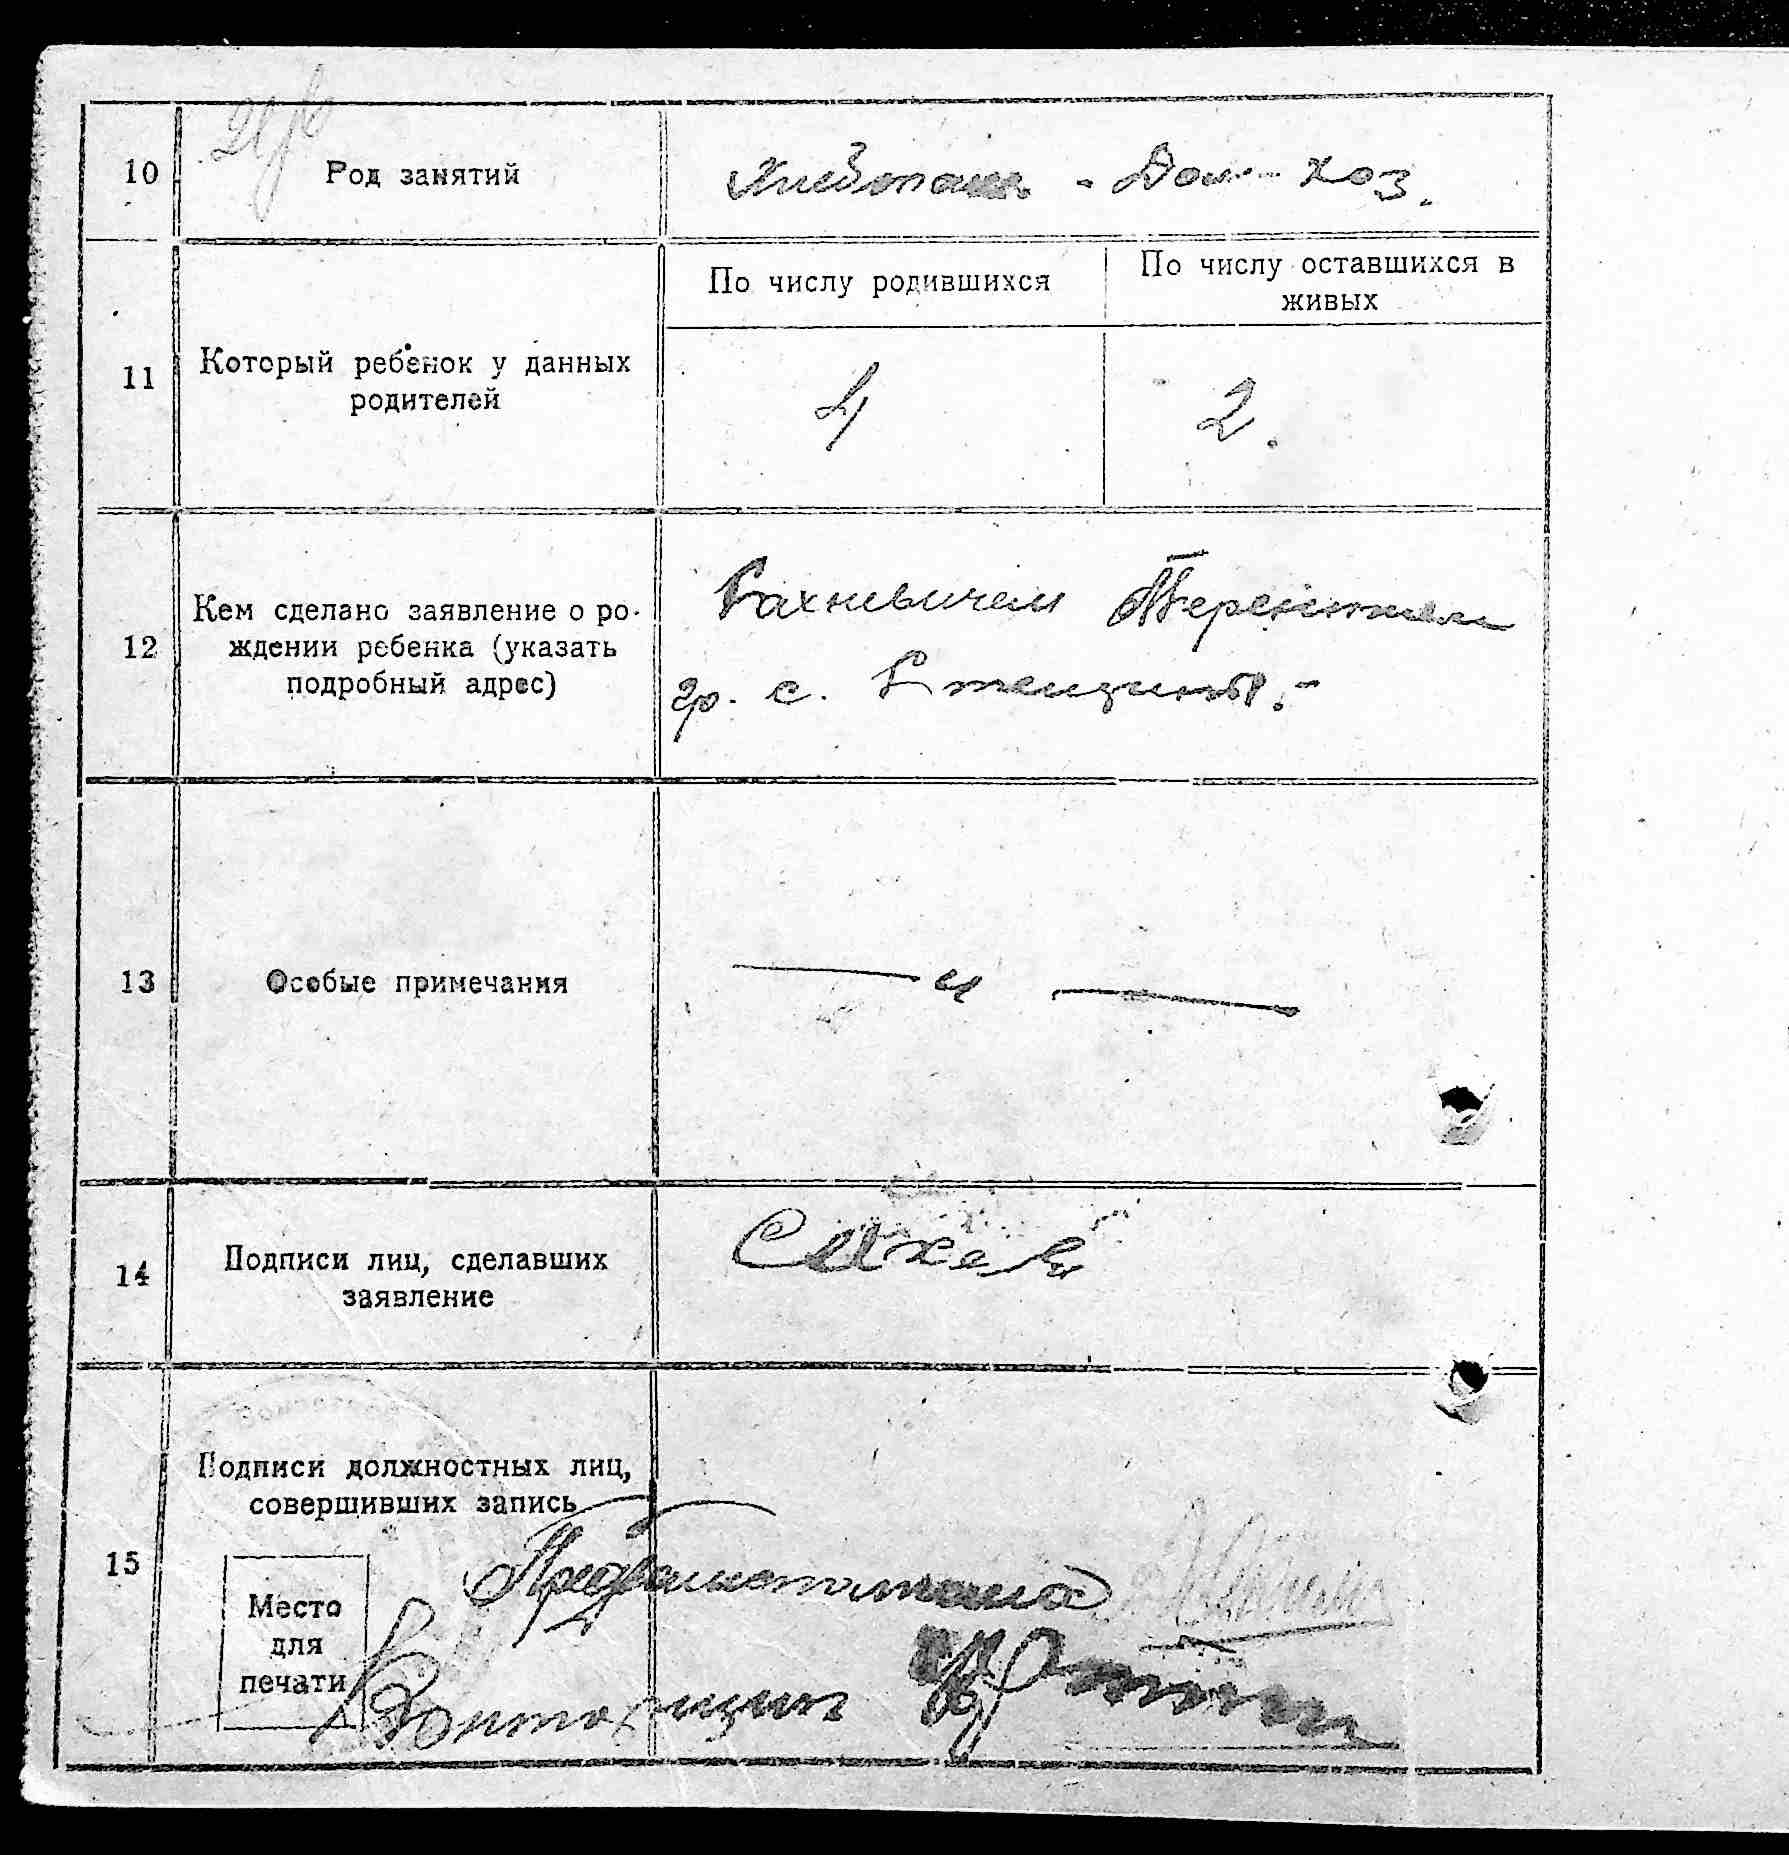 10 Род занятий Хлебопаш. - Дом-хоз.
11 Который ребенок у данных
родителей
По числу родившихся
По числу оставшихся в
живых
4
2.
12 Кем сделано заявление о ро-
ждении ребенка (указать
подробный адрес)
Рахневичем Терентием
гр. с. Стенцины.-
13 Особые примечания
— " —
14 Подписи лиц, сделавших
заявление
15 Подписи должностных лиц,
совершивших запись
Место
для
печати